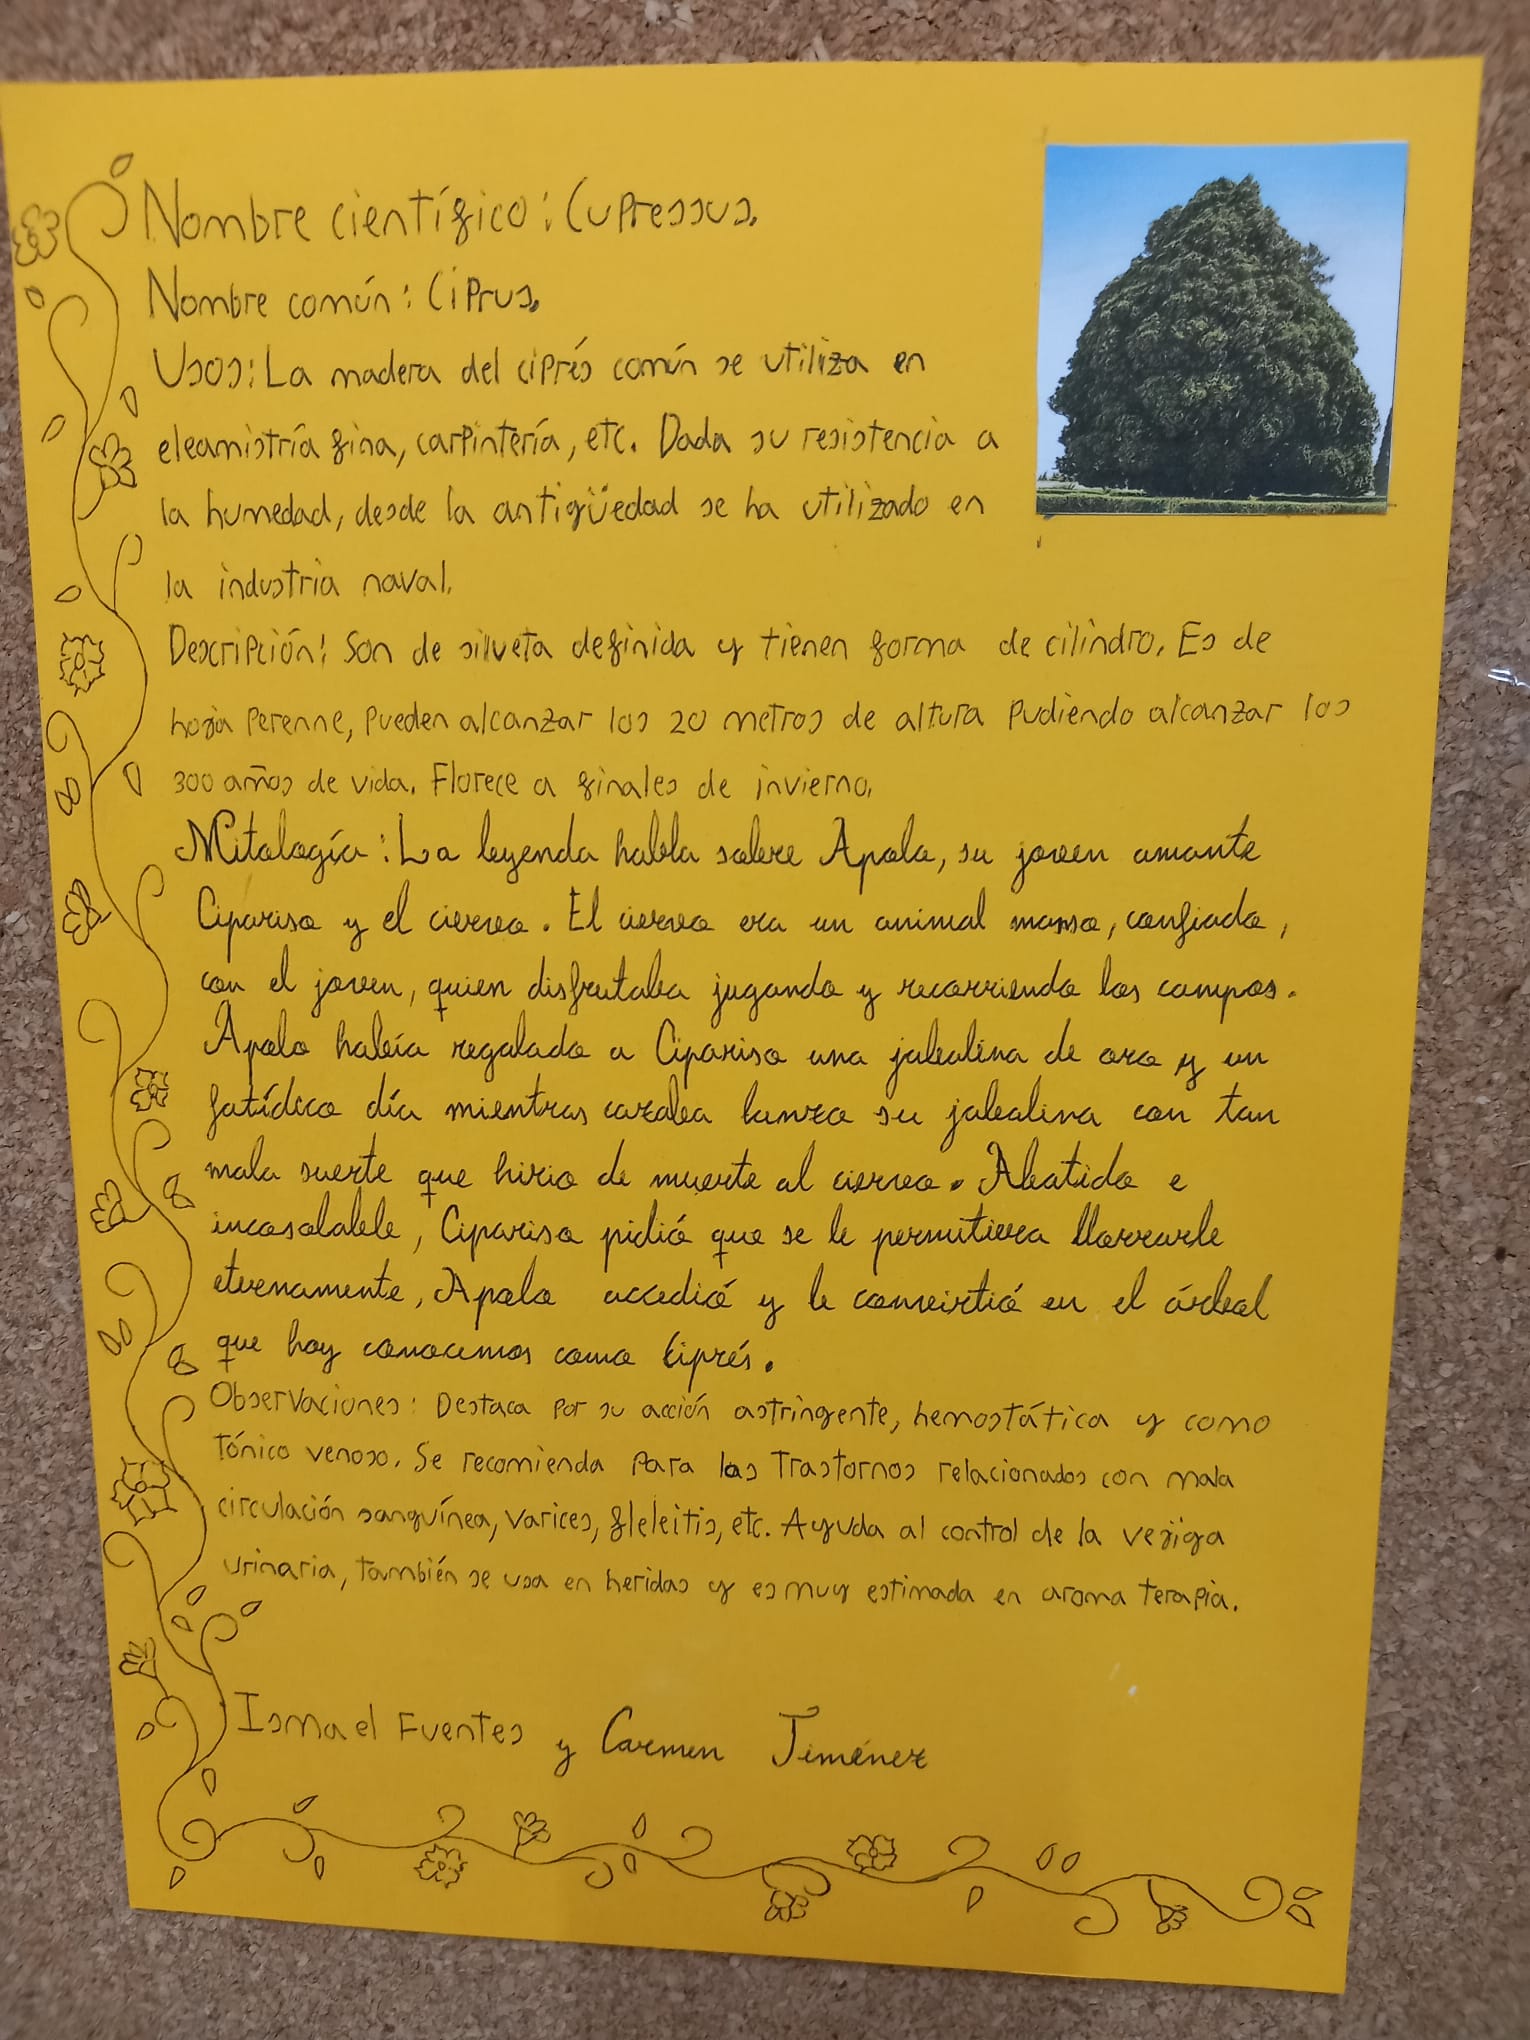 Nombre científico: Cupressus.
Nombre común: Ciprus.
Usos: La madera del ciprés común se utiliza en
eleamistría fina, carpintería, etc. Dada su resistencia a
la humedad, desde la antigüedad se ha utilizado en
la industria naval.
Descripción: Son de silveta definida y tienen forma de cilindro. Es de
hoja perenne, pueden alcanzar los 20 metros de altura pudiendo alcanzar los
300 años de vida. Florece a finales de invierno.
Mitología: La leyenda habla sobre Apolo, su joven amante
Cipariso y el ciervo. El ciervo era un animal manso, confiado,
con el joven, quien disfrutaba jugando y recorriendo los campos.
Apolo había regalado a Cipariso una jabalina de oro y un
fatídico día mientras cazaba lanzo su jabalina con tan
mala suerte que hirio de muerte al ciervo. Abatido e
incosolable, Cipariso pidió que se le permitiera llorrarle
eternamente, Apolo accedió y le conveirtió en el árbol
que hoy conocemos como Ciprés.
Observaciones: Destaca por su acción astringente, hemostática y como
tónico venoso. Se recomienda para los trastornos relacionados con mala
circulación sanguínea, varices, fleleitis, etc. Ayuda al control de la vejiga
urinaria, también se usa en heridas y es muy estimada en aroma terapia.
Ismael Fuentes y Carmen Jiménez